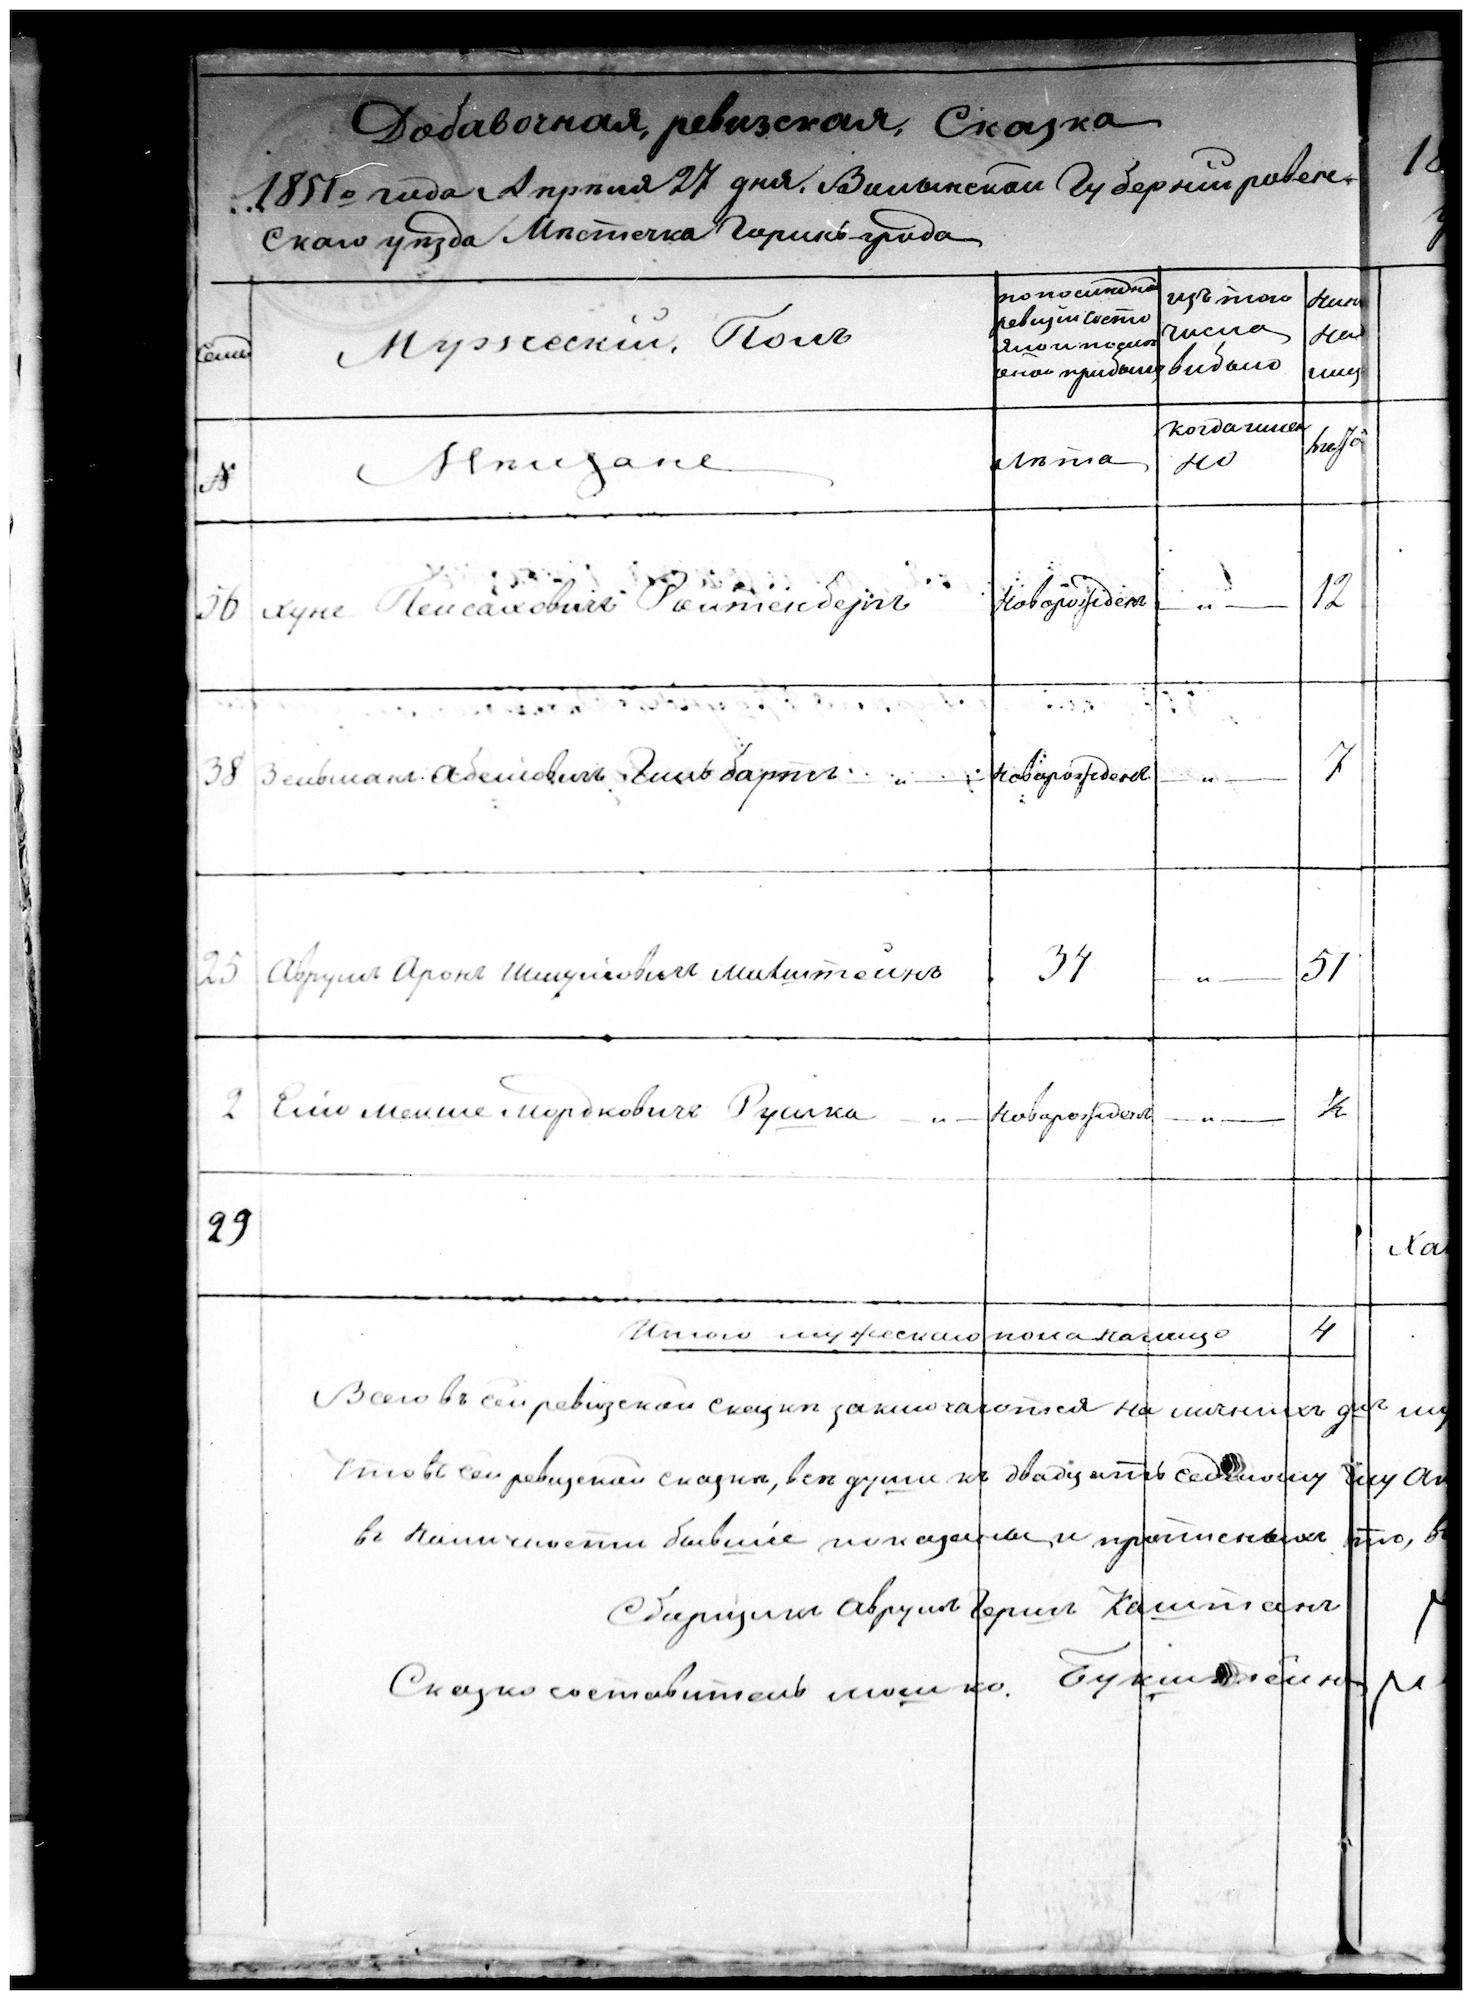 Добавочная, ревизская, Сказка
1851о года Апрѣля 27 дня. Волынской Губерніи ровен-
Скаго уѣзда Мѣстечка Горинь-града
Семьи
Мужескій, Полъ
по послѣдней
ревизіи состо
яло и послѣ
оной прибыло
изъ того
числа
выбыло
Нынѣ
на
лиц
№
Мѣщане
лѣта
когда имен
но
лѣта
18
36 хуне Пейсаховичъ Ройтенбергъ Новорожденъ " 12
38 Зельманъ Абелиовичъ Гильбартъ " Новорожденъ " 7
25 Аврумъ Аронъ Шмулиовичъ Макштейнъ 34 " 51
2 Елio Мекше Мордковичъ Рушка " Новорожденъ " ½
29
Ха
Итого мужескаго пола налицо 4
Всего въ сей ревизской сказкѣ заключается на личныхъ
Что въ сей ревизской сказкѣ, всѣ души къ двадцать седьмому
въ наличности бывшіе показаны и прописныхъ
Сборщикъ Аврумъ Гершъ Каштанъ
Сказко составитель мошко. Букштейнъ